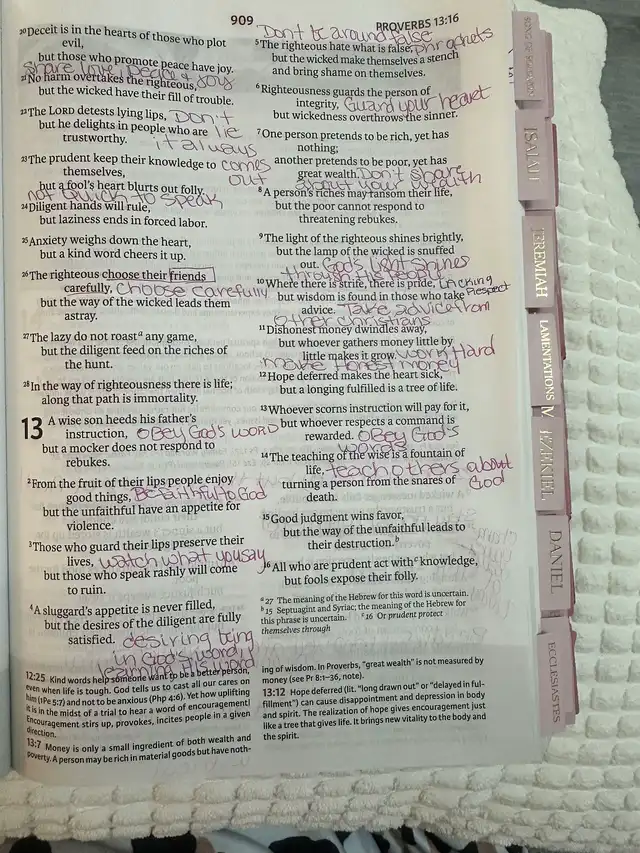 909
PROVERBS 13:16
20 Deceit is in the hearts of those who plot
evil,
but those who promote peace have joy.
Share love, peace & joy
21 No harm overtakes the righteous,
but the wicked have their fill of trouble.
22 The LORD detests lying lips, Don't
but he delights in people who are lie
trustworthy. it always
23 The prudent keep their knowledge to comes
themselves, out
but a fool's heart blurts out folly.
not quick to speak
24 Diligent hands will rule,
but laziness ends in forced labor.
25 Anxiety weighs down the heart,
but a kind word cheers it up.
26 The righteous choose their friends
carefully, choose carefully
but the way of the wicked leads them
astray.
27 The lazy do not roast a any game,
but the diligent feed on the riches of
the hunt.
28 In the way of righteousness there is life;
along that path is immortality.
13 A wise son heeds his father's
instruction, Obey God's word
but a mocker does not respond to
rebukes.
2 From the fruit of their lips people enjoy
good things, Be faithful to God
but the unfaithful have an appetite for
violence.
3 Those who guard their lips preserve their
lives, watch what you say
but those who speak rashly will come
to ruin.
4 A sluggard's appetite is never filled,
but the desires of the diligent are fully
satisfied. desiring being
in God's word,
learning his word
12:25 Kind words help someone want to be a better person,
even when life is tough. God tells us to cast all our cares on
him (1Pe 5:7) and not to be anxious (Php 4:6). Yet how uplifting
it is in the midst of a trial to hear a word of encouragement!
Encouragement stirs up, provokes, incites people in a given
direction.
13:7 Money is only a small ingredient of both wealth and
poverty. A person may be rich in material goods but have noth-
Don't be around false
5 The righteous hate what is false, prophets
but the wicked make themselves a stench
and bring shame on themselves.
6 Righteousness guards the person of
integrity, Guard your heart
but wickedness overthrows the sinner.
7 One person pretends to be rich, yet has
nothing;
another pretends to be poor, yet has
great wealth. Don't share
about your wealth
8 A person's riches may ransom their life,
but the poor cannot respond to
threatening rebukes.
9 The light of the righteous shines brightly,
but the lamp of the wicked is snuffed
out. God's light shines
through his people
10 Where there is strife, there is pride, Lacking
but wisdom is found in those who take Respect
advice. Take advice from
other christians
11 Dishonest money dwindles away,
but whoever gathers money little by
little makes it grow. work Hard
make Honest money
12 Hope deferred makes the heart sick,
but a longing fulfilled is a tree of life.
13 Whoever scorns instruction will pay for it,
but whoever respects a command is
rewarded. Obey God's
words
14 The teaching of the wise is a fountain of
life, teach others about
turning a person from the snares of God
death.
15 Good judgment wins favor,
but the way of the unfaithful leads to
their destruction. b
16 All who are prudent act with c knowledge,
but fools expose their folly.
a 27 The meaning of the Hebrew for this word is uncertain.
b 15 Septuagint and Syriac; the meaning of the Hebrew for
this phrase is uncertain. c 16 Or prudent protect
themselves through
ing of wisdom. In Proverbs, "great wealth" is not measured by
money (see Pr 8:1–36, note).
13:12 Hope deferred (lit. "long drawn out" or "delayed in ful-
fillment") can cause disappointment and depression in body
and spirit. The realization of hope gives encouragement just
like a tree that gives life. It brings new vitality to the body and
the spirit.
ISAIAH
JEREMIAH
LAMENTATIONS
EZEKIEL
DANIEL
ECCLESIASTES